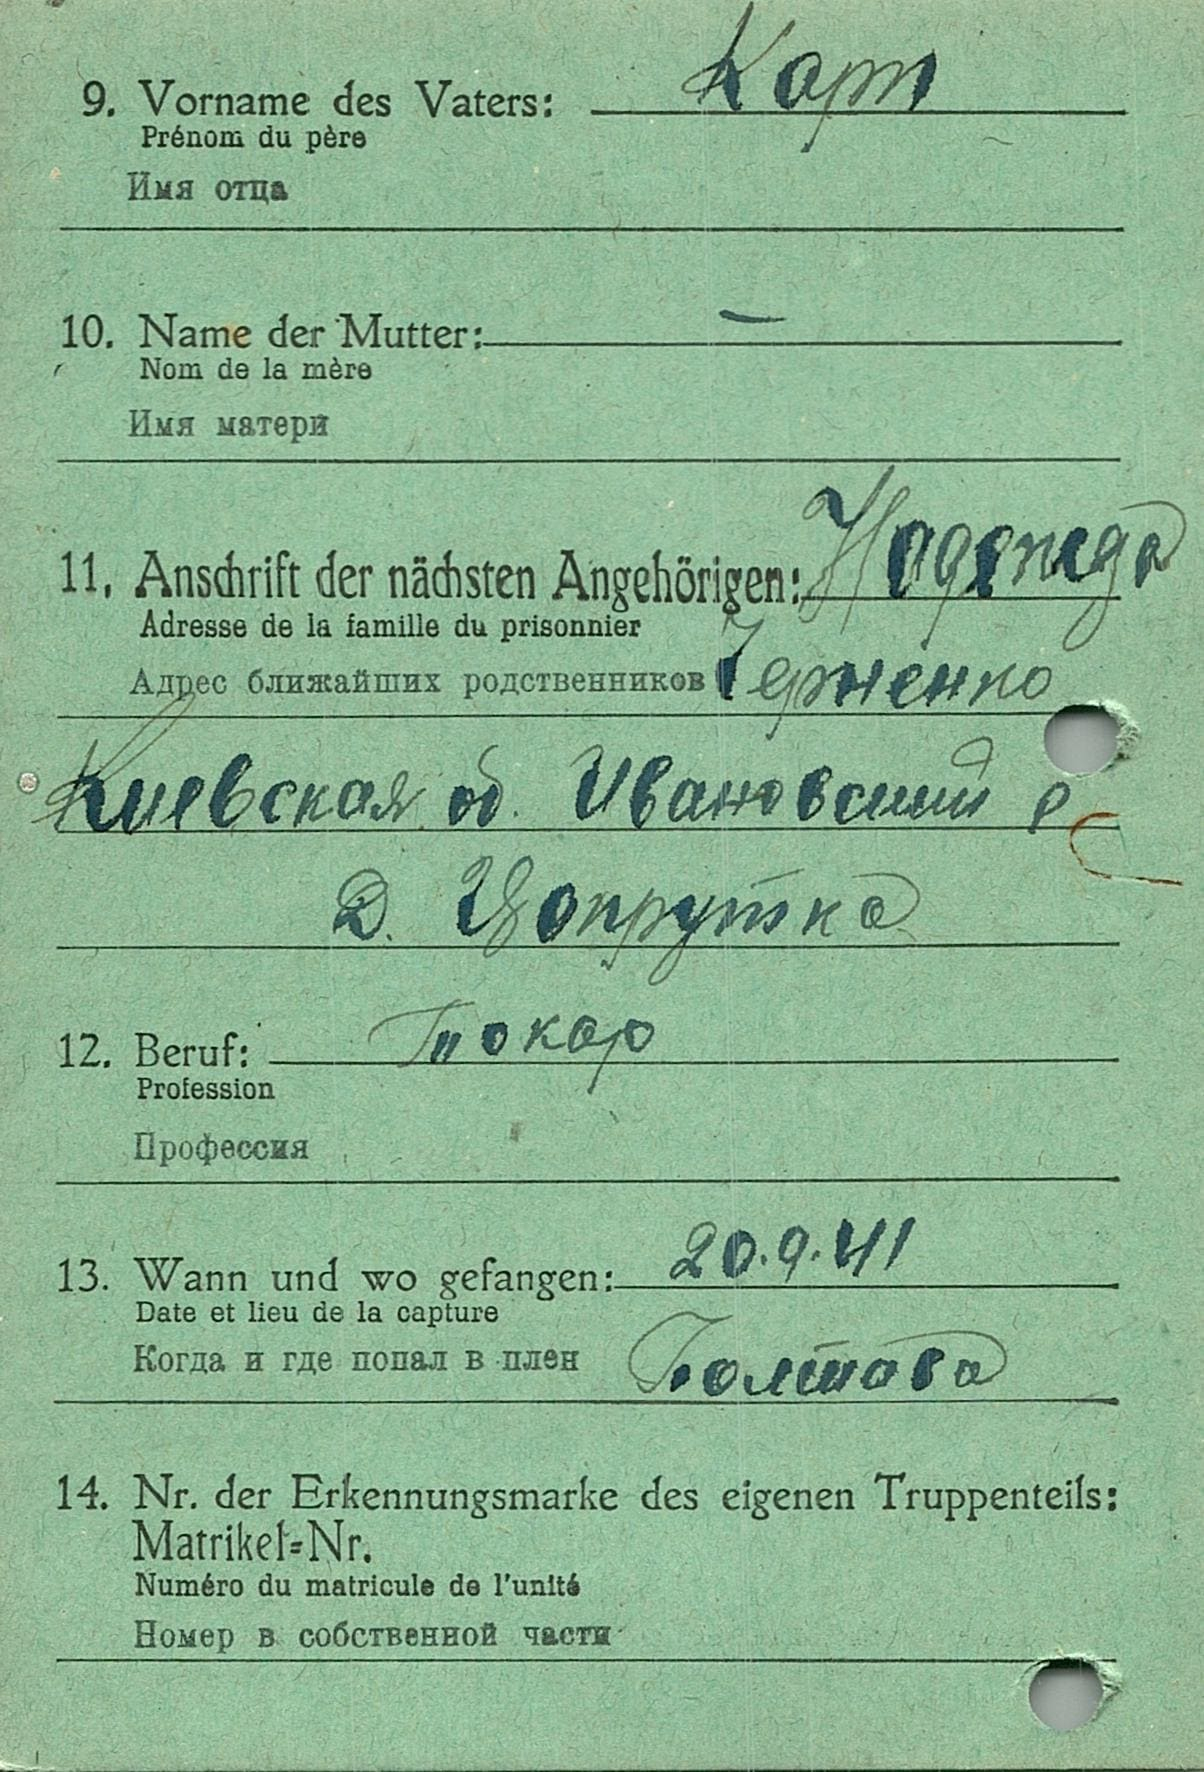 9. Vorname des Vaters: Карп
Prénom du père
Имя отца
10. Name der Mutter: —
Nom de la mère
Имя матери
11. Anschrift der nächsten Angehörigen: Надежда
Adresse de la famille du prisonnier
Адрес ближайших родственников Черненко
Киевская об. Ивановский р
Д.
12. Beruf: Токар
Profession
Профессия
13. Wann und wo gefangen: 20.9.41
Date et lieu de la capture
Когда и где попал в плен Полтава
14. Nr. der Erkennungsmarke des eigenen Truppenteils:
Matrikel=Nr.
Numéro du matricule de l'unité
Номер в собственной части